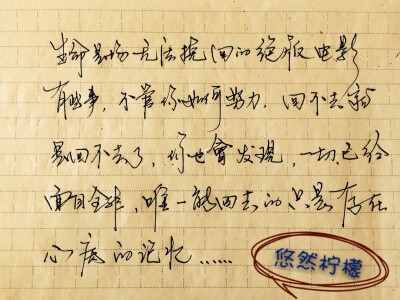 生命是场无法挽回的绝版电影
有些事，不管你如何努力，回不去就
是回不去了，你也會发现，一切已经
面目全非，唯一能回去的只是存在
心底的记忆……
悠然柠檬